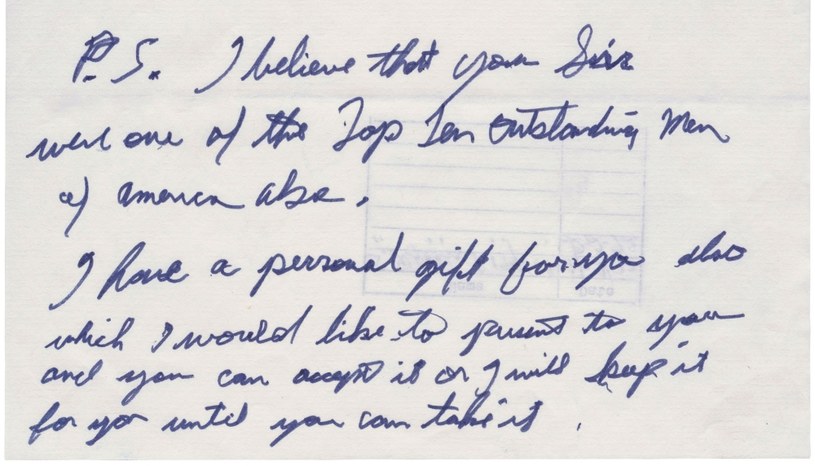 P.S. I believe that you Sir
were one of the Top Ten Outstanding Men
of America also.
I have a personal gift for you also
which I would like to present to you
and you can accept it or I will keep it
for you until you can take it.